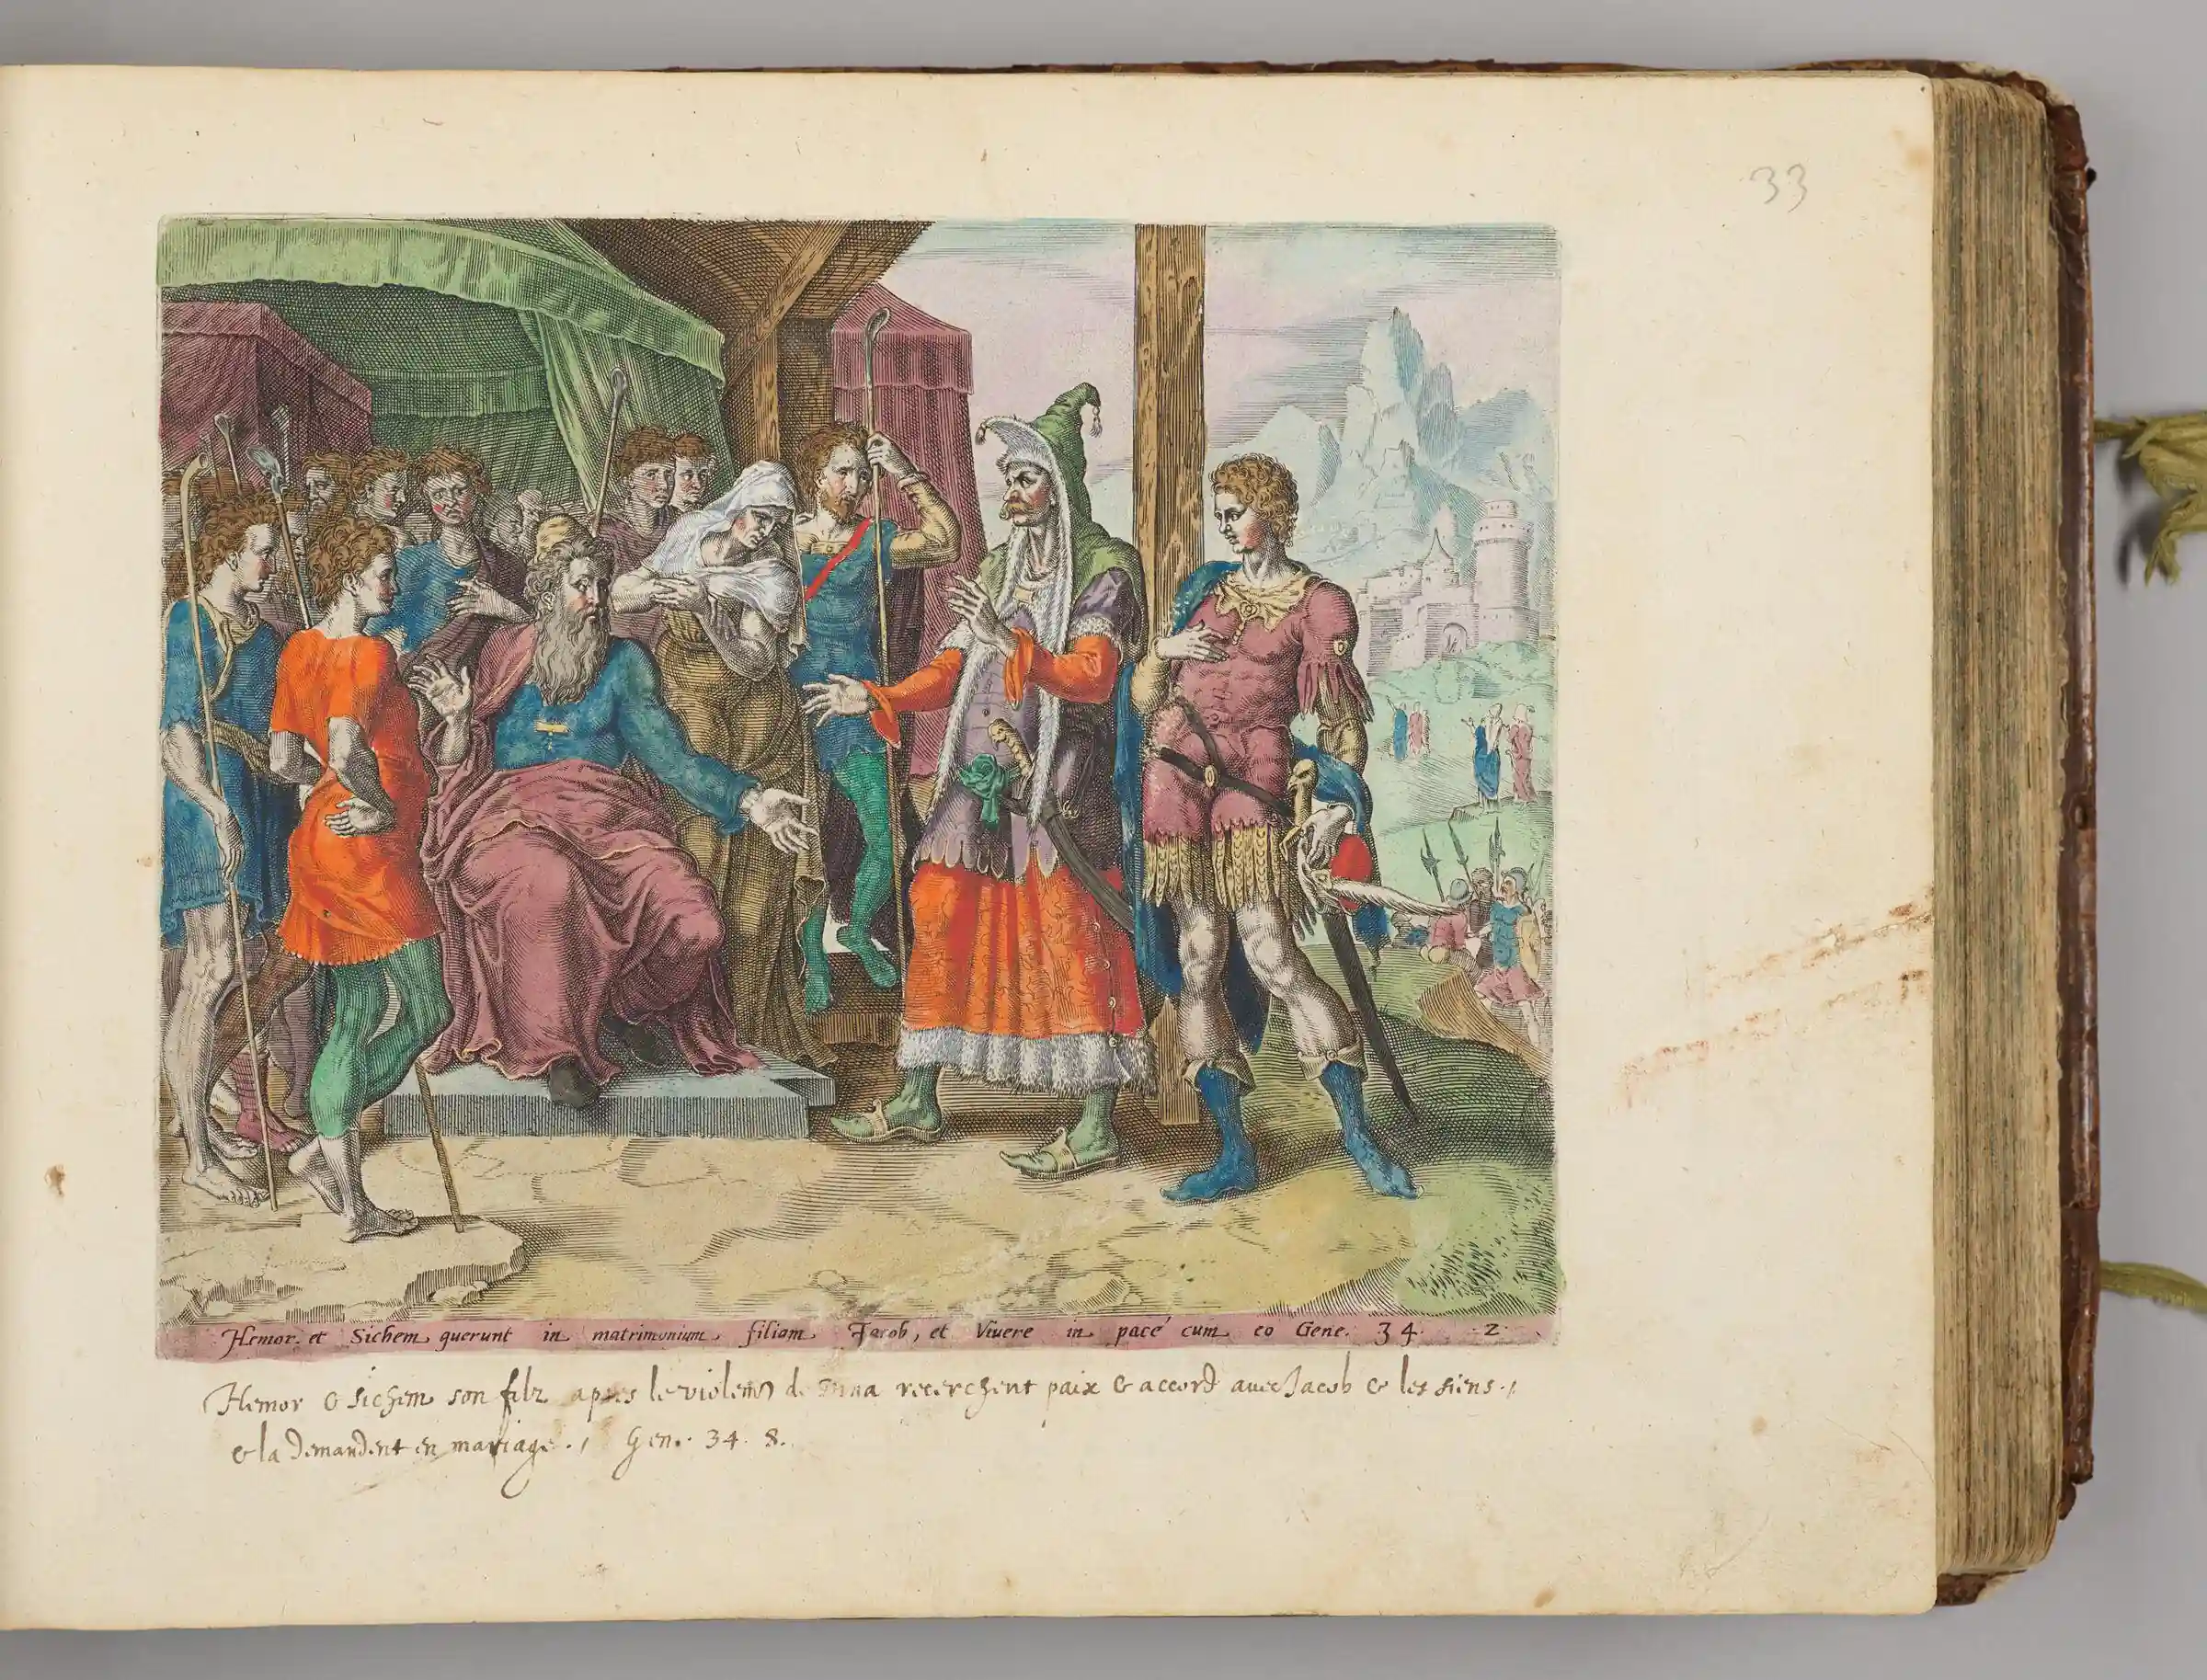 33
Hemor et Sichem querunt in matrimonium filiam Jacob, et Viuere in pace cum eo Gene. 34. 2.
Hemor & Sichem son filz apres le violem̃t de Dina recerchent paix & accord auec Jacob & les siens.,
& la demandent en mariage., Gen. 34. 8.